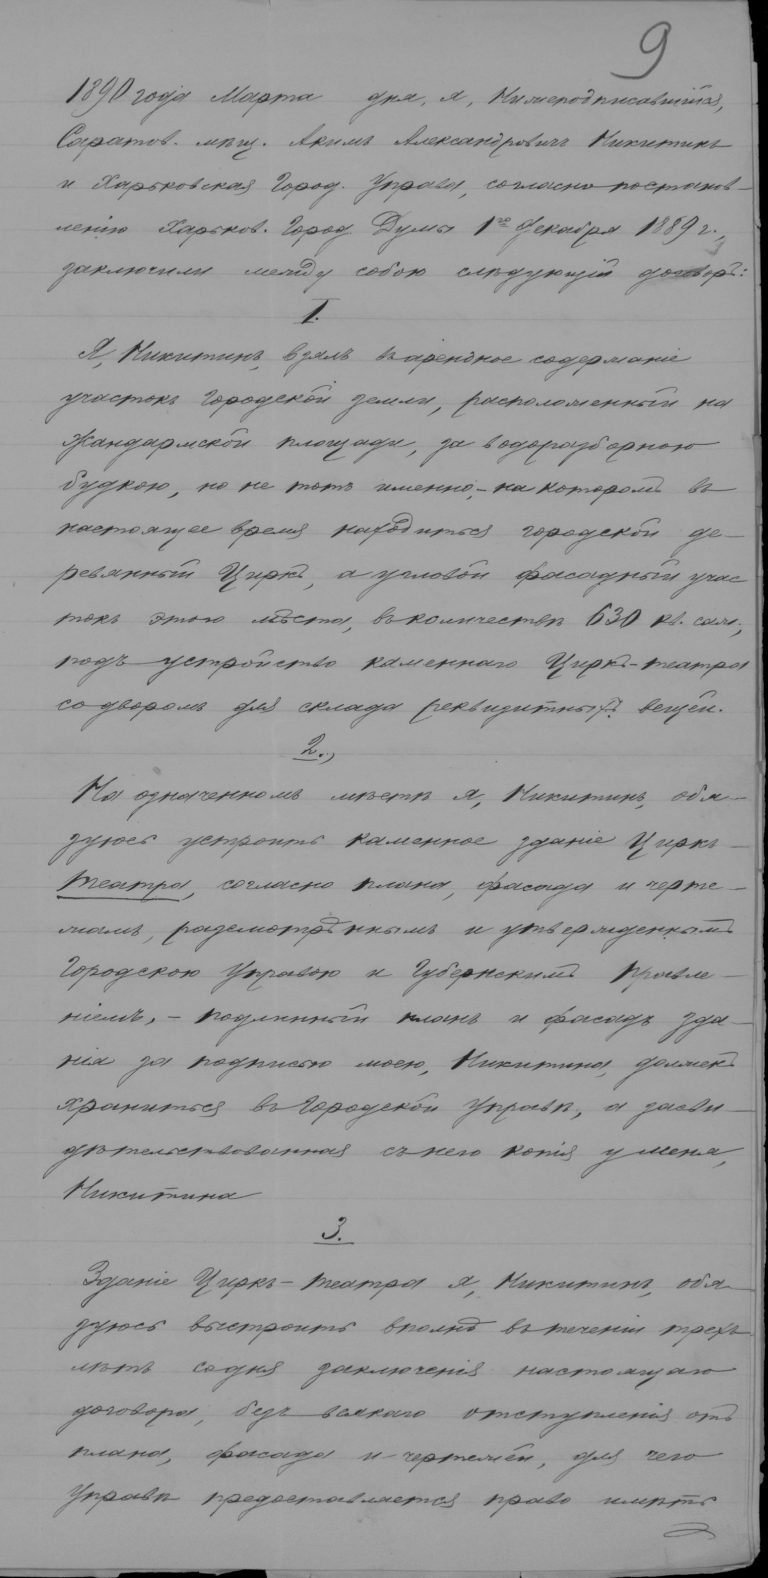 9
1890 года Марта дня, я, нижеподписавшийся,
Саратов. мѣщ. Акимъ Александровичъ Никитинъ
и Харьковская Город. Управа, согласно постанов-
ленію Харьков. Город. Думы 1го Декабря 1889 г.,
заключили между собою слѣдующій договоръ:
I.
Я, Никитинъ, взялъ въ арендное содержаніе
участокъ Городской земли, расположенный на
Жандармской площади, за водоразборною
будкою, но не тотъ именно,- на которомъ въ
настоящее время находиться городской де-
ревянный Циркъ, а угловой фасадный учас
токъ этого мѣста, въ количествѣ 630 кв. саж.,
подъ устройство каменнаго Циркъ-театра
со дворомъ для склада реквизитныхъ вещей.
2.,
На означенномъ мѣстѣ я, Никитинъ, обя-
зуюсь устроить каменное зданіе Циркъ-
театра, согласно плана, фасада и черте-
жамъ, разсмотрѣннымъ и утвержденнымъ
Городскою Управою и Губернскимъ Правле-
ніемъ,- подлинный планъ и фасадъ зда-
нія за подписью моею, Никитина, долженъ
храниться въ Городской Управѣ, а засви-
дѣтельствованная съ него копія у меня,
Никитина
3.
Зданіе Циркъ-театра я, Никитинъ, обя-
зуюсь выстроить вполнѣ въ теченіи трехъ
лѣтъ со дня заключенія настоящаго
договора, безъ всякаго отступленія отъ
плана, фасада и чертежей, для чего
Управѣ предоставляется право имѣть